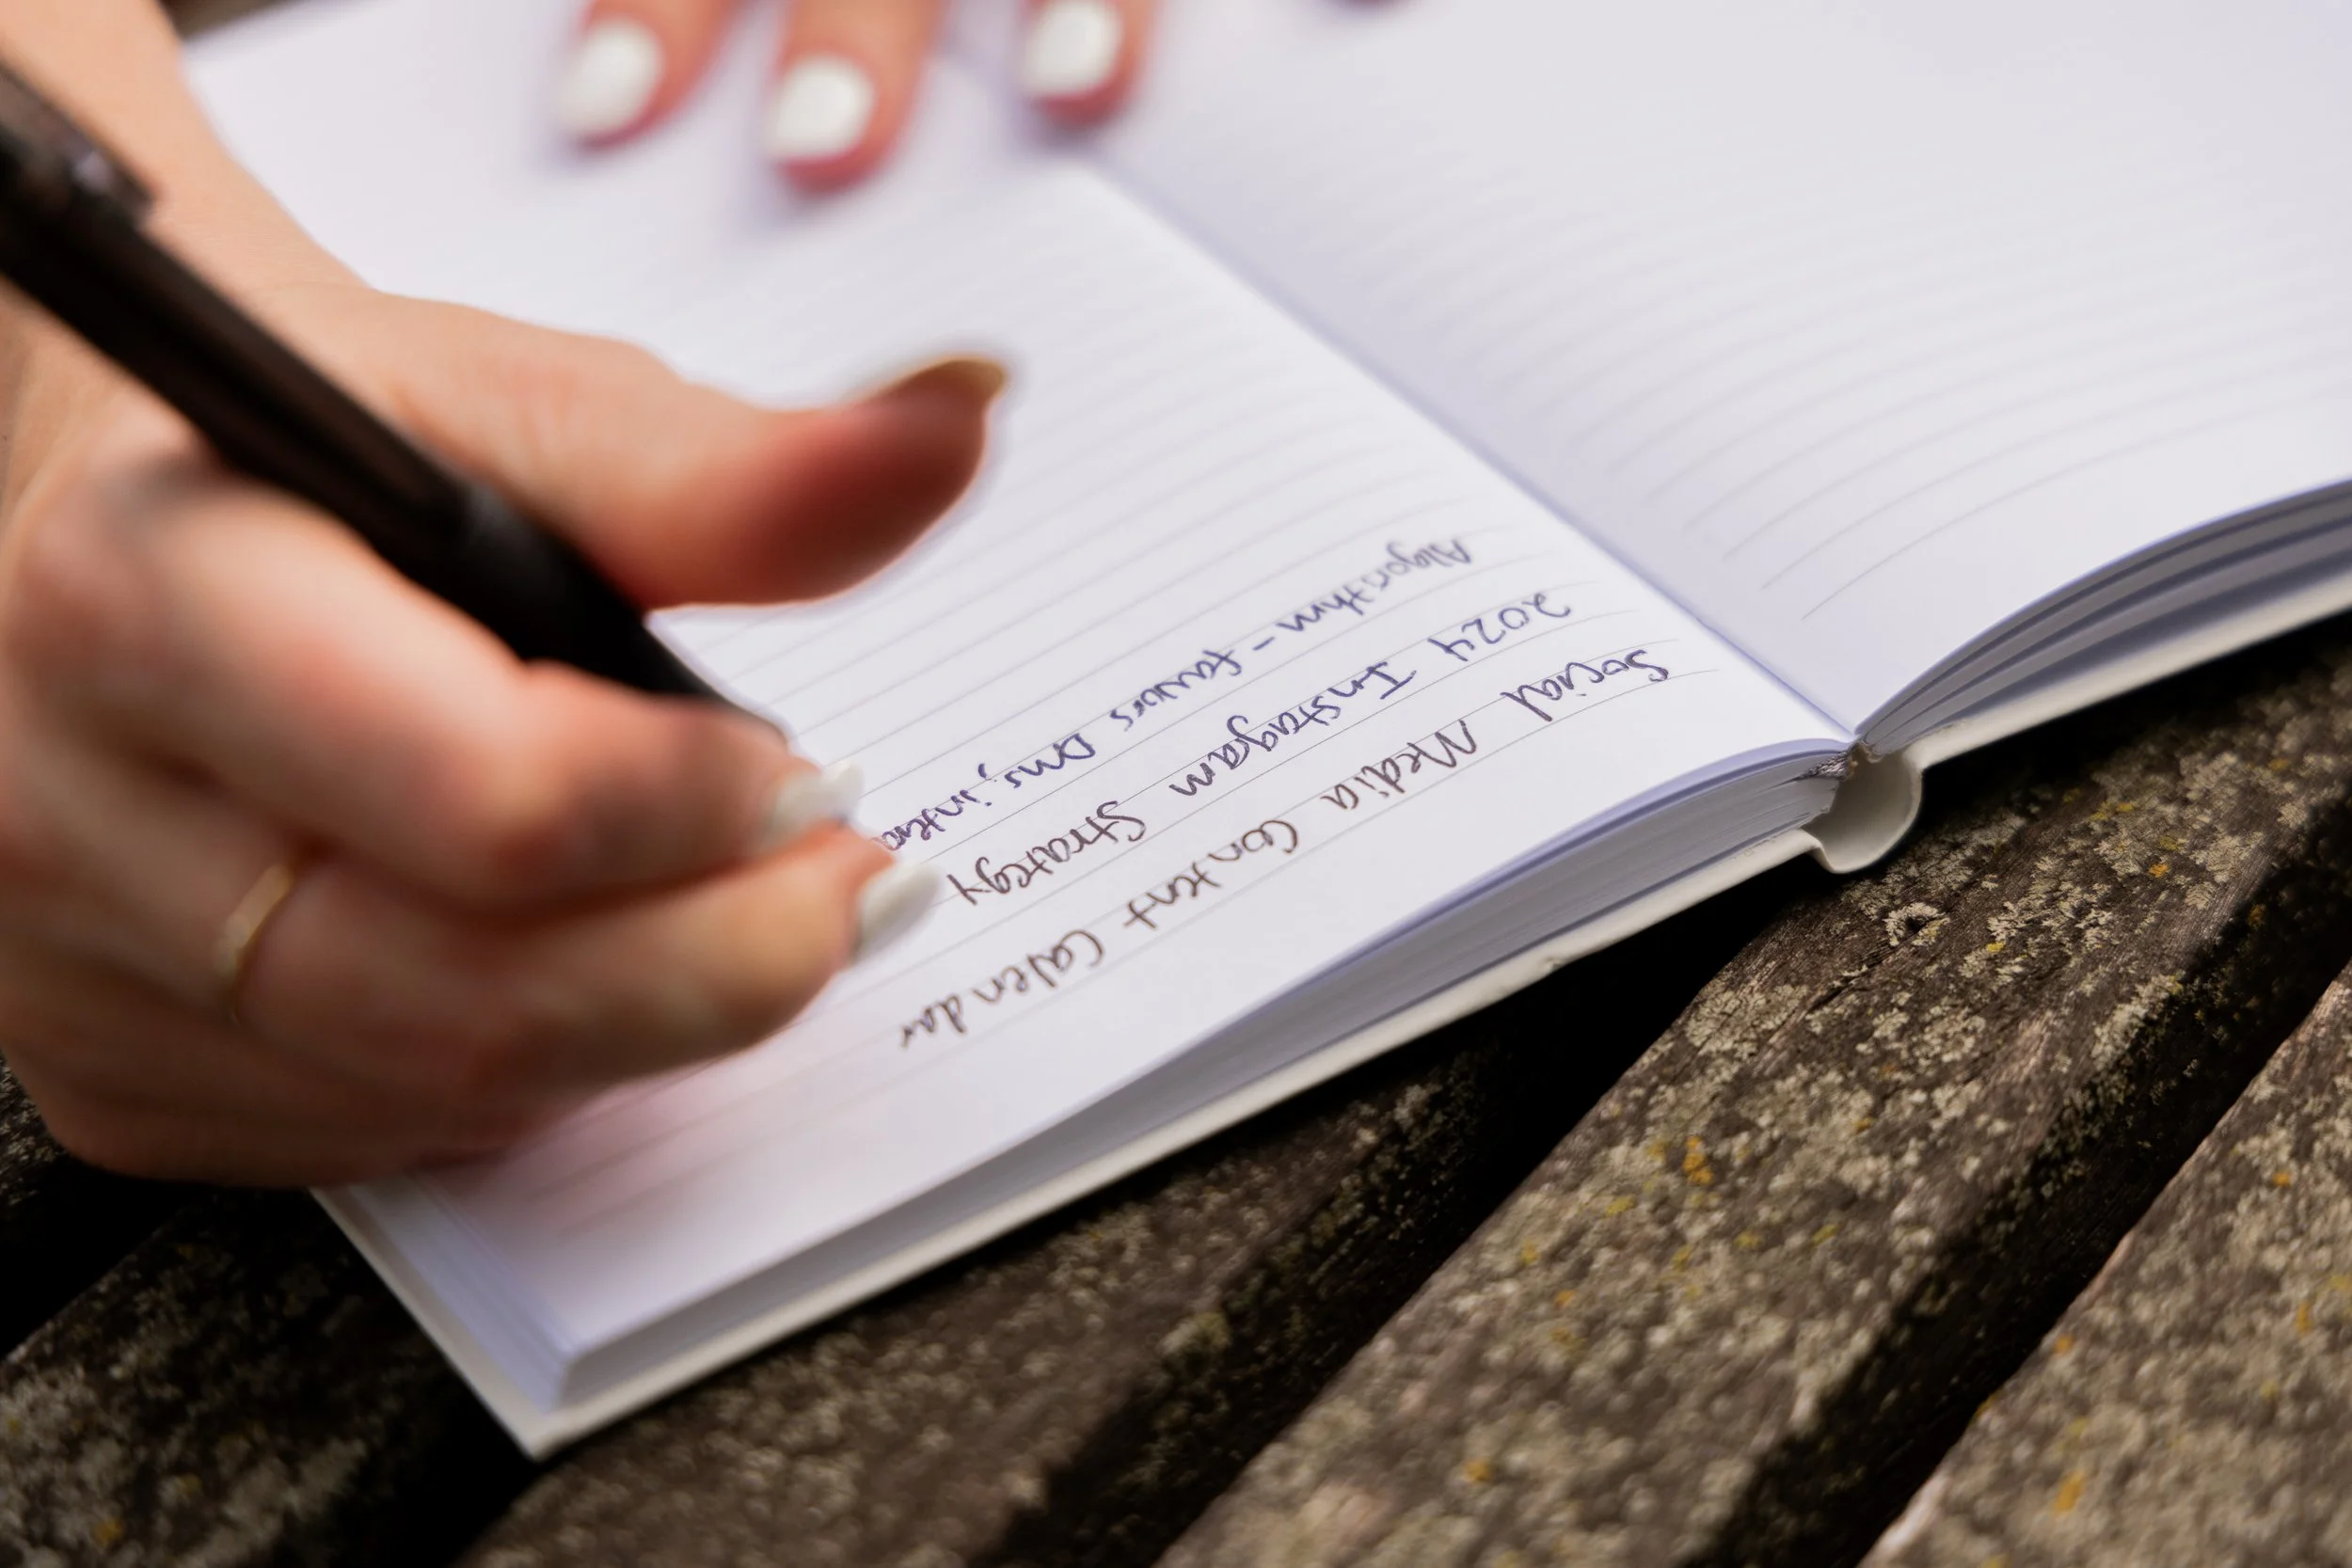 Social Media Content Calendar
2024 Instagram Strategy
Algorithm - favours Dms, intera